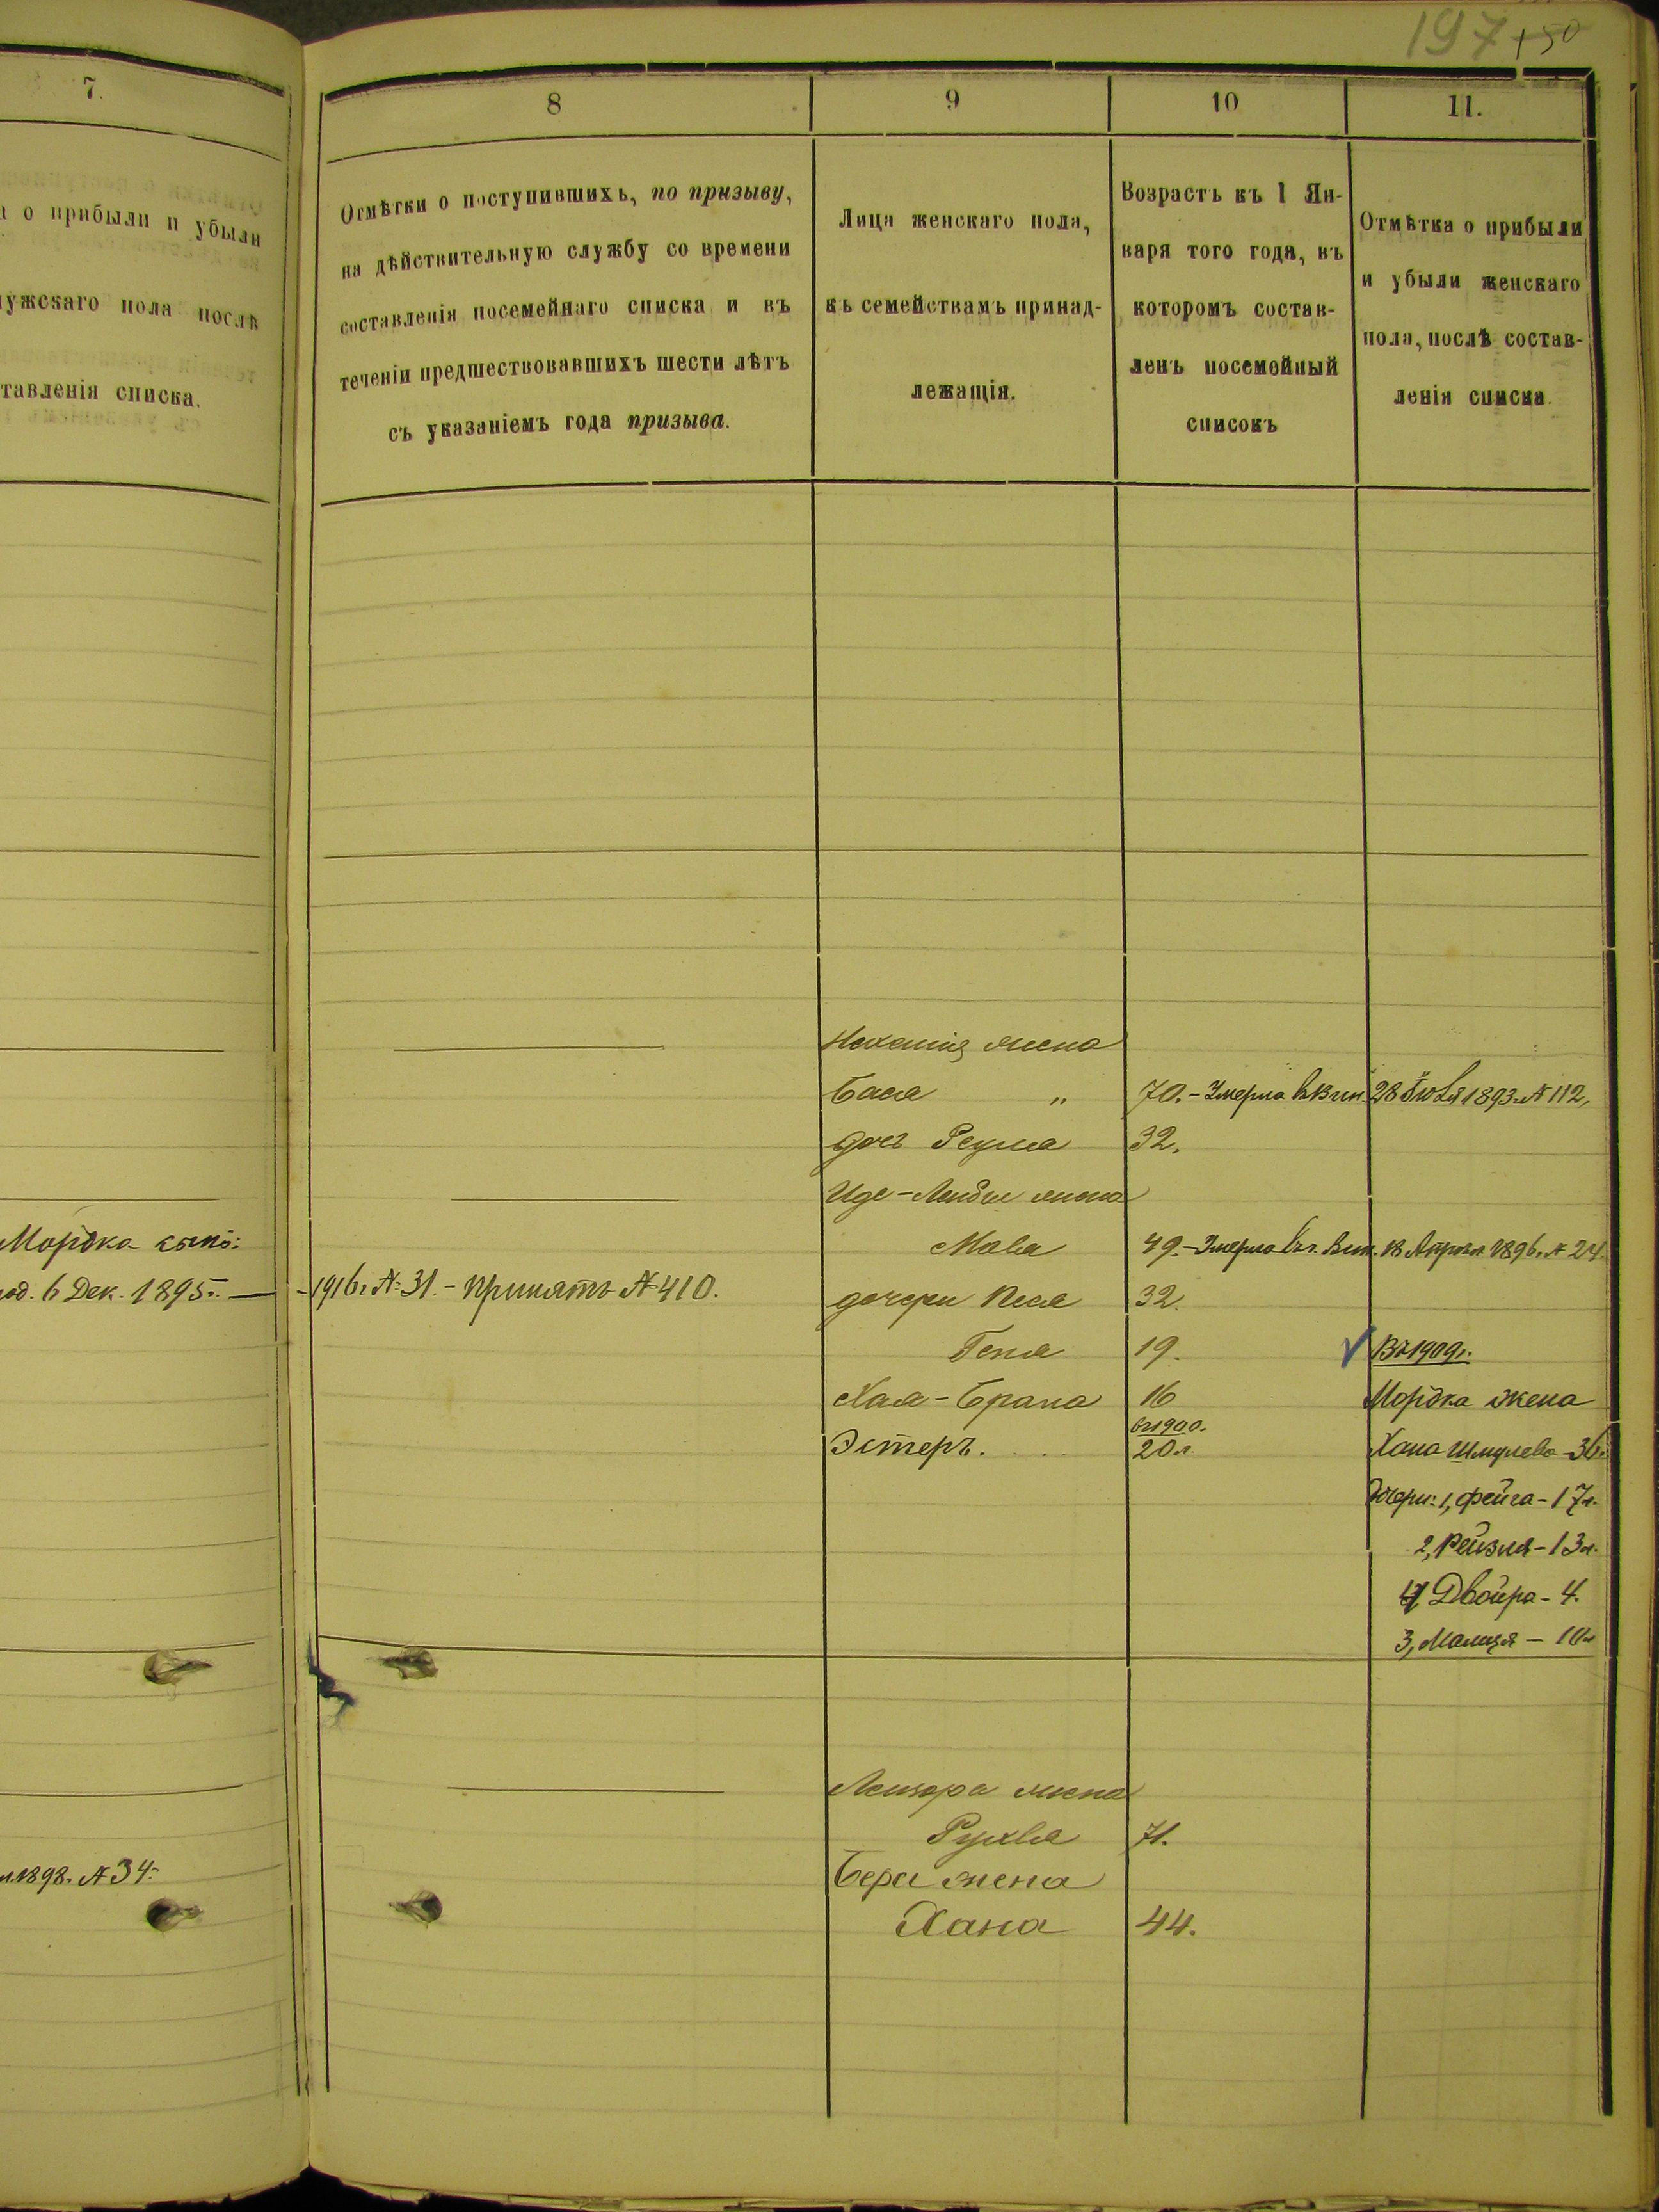 197 + 50
7.
8
9
10
11.
а о прибыли и убыли
мужскаго пола послѣ
тавленія списка.
Отмѣтки о поступившихъ, по призыву,
на дѣйствительную службу со времени
составленія посемейнаго списка и въ
теченіи предшествовавшихъ шести лѣтъ
съ указаніемъ года призыва.
Лица женскаго пола,
къ семействамъ принад-
лежащія.
Возрастъ къ 1 Ян-
варя того года, въ
которомъ состав-
ленъ посемейный
списокъ
Отмѣтка о прибыли
и убыли женскаго
пола, послѣ состав-
ленія списка.
жена
Бася " 70. - Умерла 28 1893 г. № 112,
дочь 32.
жена
49. - Умерла въ г. Вил. 18 Апрѣля 1896 г. № 24.
Мордка сынъ:
род. 6 Дек. 1895 г. — - 1916 г. № 31. - принятъ № 410.
дочери Песя 32.
Геня 19. Въ 1909 г.
Хая - Брана 16 Мордка жена
въ 1900 г.
Эстеръ. 20 л. Хана Шмулева - 36.
дочери: 1, Фейга - 17 л.
2, Рейзля - 13 л.
4 Двойра - 4.
3, - 10 л
Лейзера жена
Рухля 71.
Бера жена
1898 г. № 34.
Хана 44.